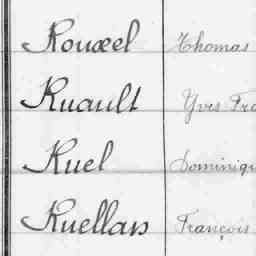 Rouxel Thomas
Ruault Yves Fra
Ruel Dominiqu
Ruellan François